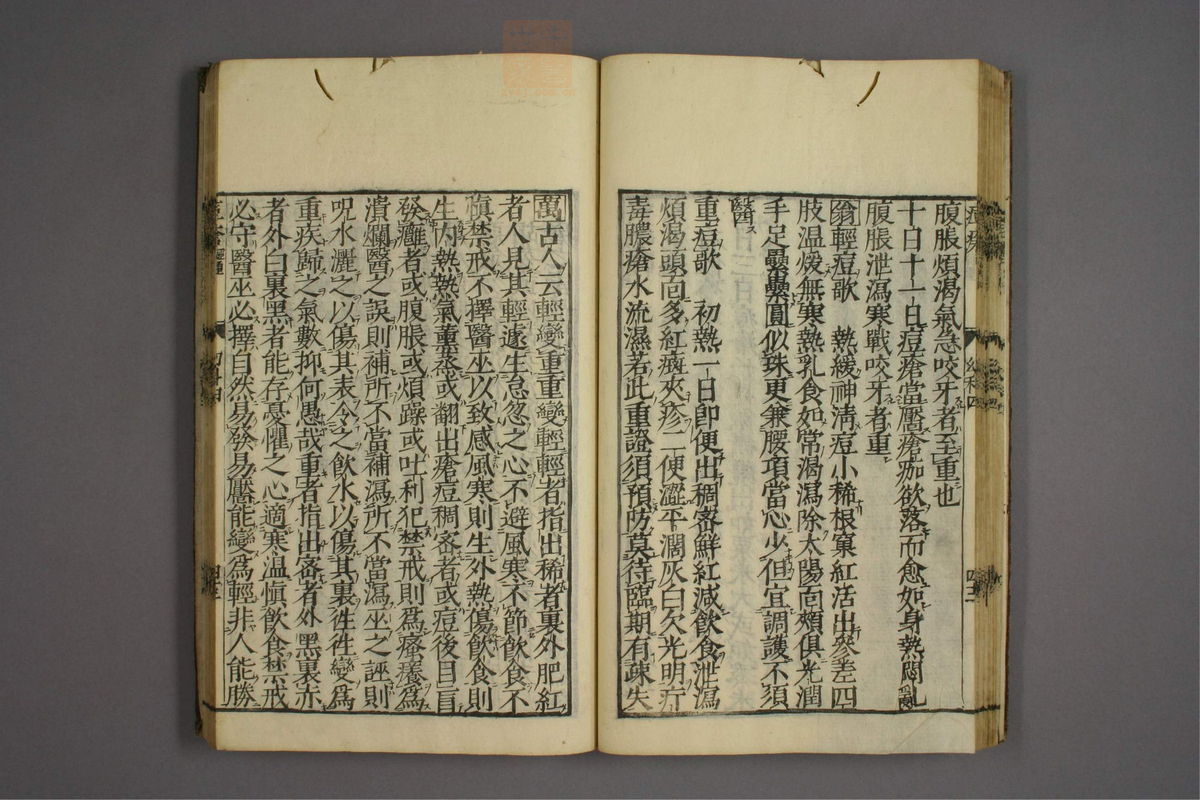 腹脹煩渴氣急咬牙者至重也
十日十一日痘瘡當靨瘡痂欲落而愈如身熱悶亂
腹脹泄瀉寒戰咬牙者重
翁輕痘歌　熱緩神清痘小稀根窠紅活出參差四
肢溫煖無寒熱乳食如常渴瀉除太陽面頰俱光潤
手足纍纍圓似珠更兼腰項當心少但宜調護不須
醫
重痘歌　初熱一日即便出稠密鮮紅減飲食泄瀉
煩渴頭面多紅癍夾疹二便澀平濶灰白欠光明疔
毒膿瘡水流濕若此重證須預防莫待臨期有疎失
萬古人云輕變重重變輕輕者指出稀者裏外肥紅
者人見其輕遂生怠忽之心不避風寒不節飲食不
愼禁戒不擇醫巫以致感風寒則生外熱傷飲食則
生内熱熱氣薰蒸或翻出瘡痘稠密者或痘後目盲
發癰者或腹脹或煩躁或吐利犯禁戒則爲瘙癢爲
潰爛醫之誤則補所不當補瀉所不當瀉巫之誣則
呪水灑之以傷其表令之飲水以傷其裏徃徃變爲
重疾歸之氣數抑何愚哉重者指出密者外黑裏赤
者外白裏黑者能存憂懼之心適寒溫愼飲食禁戒
必守醫巫必擇自然易發易靨能變爲輕非人能勝